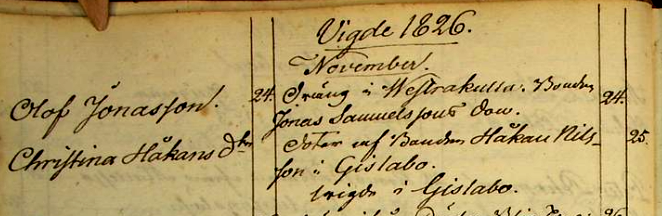 Vigde 1826.
November.
Olof Jonasson. 24. Dräng i Westrakulla. Bonden 24.
Jonas Samuelssons Son.
Christina Håkans Dtr Doter af Bonden Håkan Nils- 25.
son i Gislabo.
wigde i Gislabo.